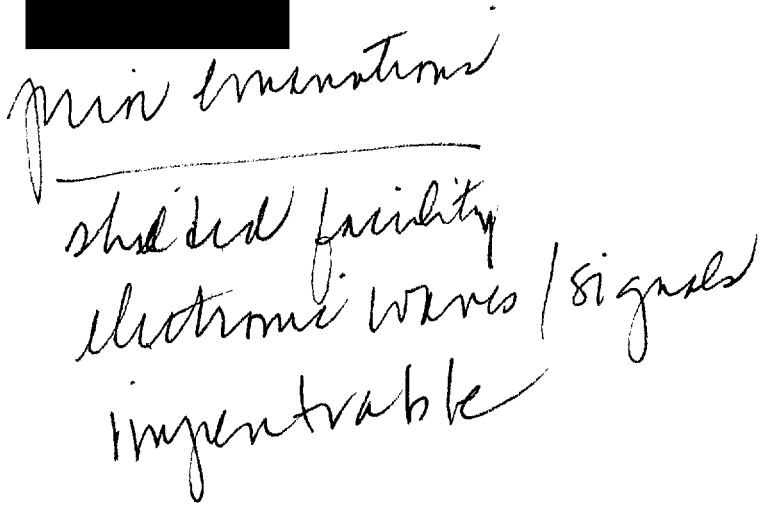 prior emanations
shielded facility
electronic waves / signals
impentrable